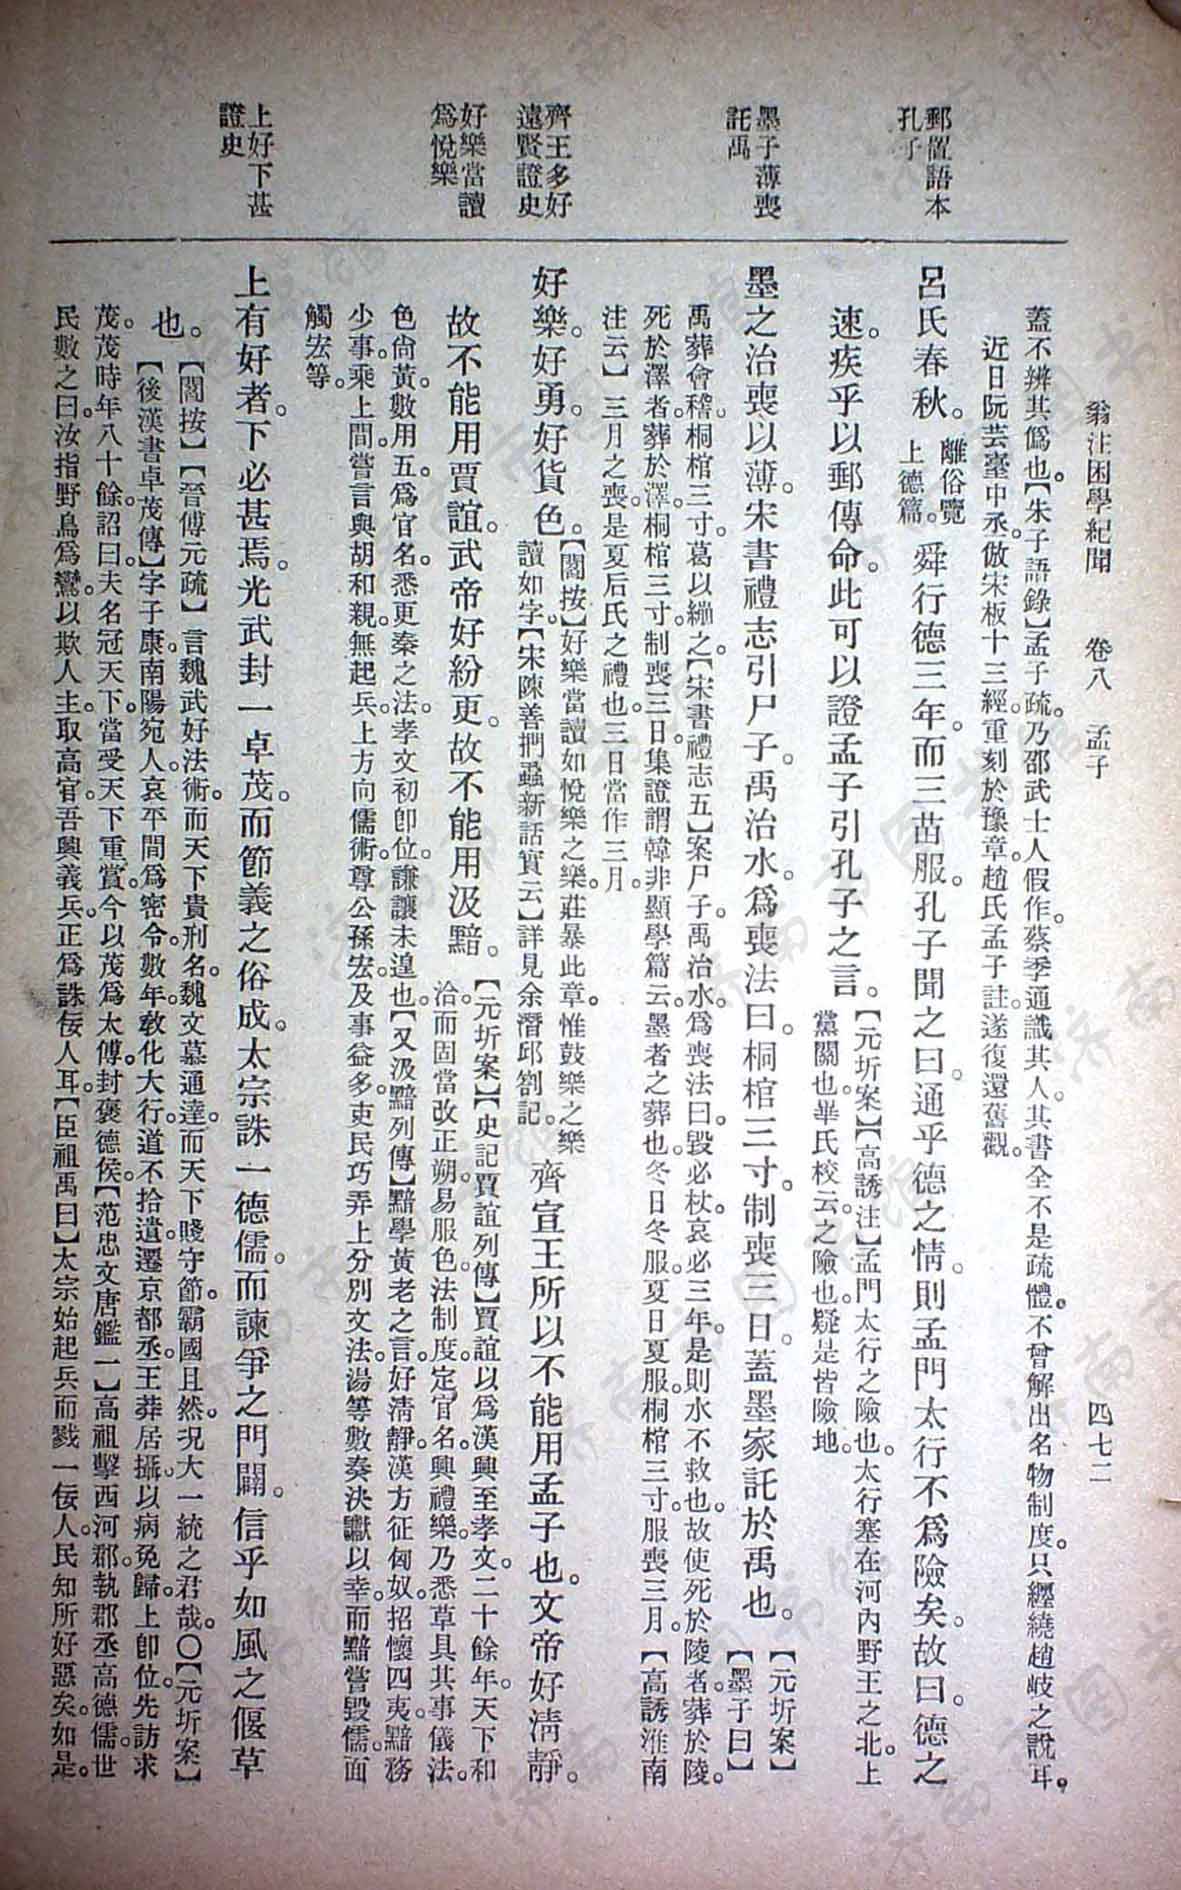 翁注困學紀聞　卷八　孟子　四七二
郵置語本
孔子
墨子薄喪
託禹
齊王多好
遠賢證史
好樂當讀
爲悅樂
上好下甚
證史
蓋不辨其僞也。【朱子語錄】孟子疏。乃邵武士人假作。蔡季通識其人。其書全不是疏體。不曾解出名物制度。只纒繞趙岐之說耳。
近日阮芸臺中丞。倣宋板十三經。重刻於豫章。趙氏孟子註。遂復還舊觀。
呂氏春秋。離俗覽上德篇。舜行德三年。而三苗服。孔子聞之曰。通乎德之情。則孟門太行不爲險矣。故曰。德之
速。疾乎以郵傳命。此可以證孟子引孔子之言。【元圻案】【高誘注】孟門太行之險也。太行塞在河內野王之北。上
黨關也。畢氏校云。之險也。疑是皆險地。
墨之治喪以薄。宋書禮志引尸子。禹治水。爲喪法曰。桐棺三寸。制喪三日。蓋墨家託於禹也。【元圻案】【墨子曰】
禹葬會稽。桐棺三寸。葛以繃之。【宋書禮志五】案尸子。禹治水。爲喪法曰。毀必杖。哀必三年。是則水不救也。故使死於陵者。葬於陵。
死於澤者。葬於澤。桐棺三寸。制喪三日。集證謂韓非顯學篇云。墨者之葬也。冬日冬服。夏日夏服。桐棺三寸。服喪三月。【高誘淮南
注云】三月之喪。是夏后氏之禮也。三日當作三月。
好樂。好勇。好貨色。【閻按】好樂當讀如悅樂之樂。莊暴此章。惟鼓樂之樂讀如字。【宋陳善捫蝨新話實云】詳見余潛邱劄記。齊宣王所以不能用孟子也。文帝好清靜。
故不能用賈誼。武帝好紛更。故不能用汲黯。【元圻案】【史記賈誼列傳】賈誼以爲漢興至孝文。二十餘年。天下和
洽。而固當改正朔。易服色。法制度。定官名。興禮樂。乃悉草具其事儀法。
色尚黃。數用五。爲官名。悉更秦之法。孝文初卽位。謙讓未遑也。【又汲黯列傳】黯學黃老之言。好清靜。漢方征匈奴。招懷四夷。黯務
少事。乘上間。嘗言與胡和親。無起兵。上方向儒術。尊公孫宏。及事益多。吏民巧弄。上分別文法。湯等數奏決讞以幸。而黯嘗毀儒。面
觸宏等。
上有好者。下必甚焉。光武封一卓茂。而節義之俗成。太宗誅一德儒。而諫爭之門闢。信乎如風之偃草
也。【閻按】【晉傅元疏】言魏武好法術。而天下貴刑名。魏文慕通達。而天下賤守節。霸國且然。況大一統之君哉。〇【元圻案】
【後漢書卓茂傳】字子康。南陽宛人。哀平間爲密令。數年。敎化大行。道不拾遺。遷京都丞。王莽居攝。以病免歸。上卽位。先訪求
茂。茂時年八十餘。詔曰。夫名冠天下。當受天下重賞。今以茂爲太傅。封褒德侯。【范忠文唐鑑一】高祖擊西河郡。執郡丞高德儒。世
民數之曰。汝指野鳥爲鸞。以欺人主。取高官。吾興義兵。正爲誅佞人耳。【臣祖禹曰】太宗始起兵而戮一佞人。民知所好惡矣。如是。